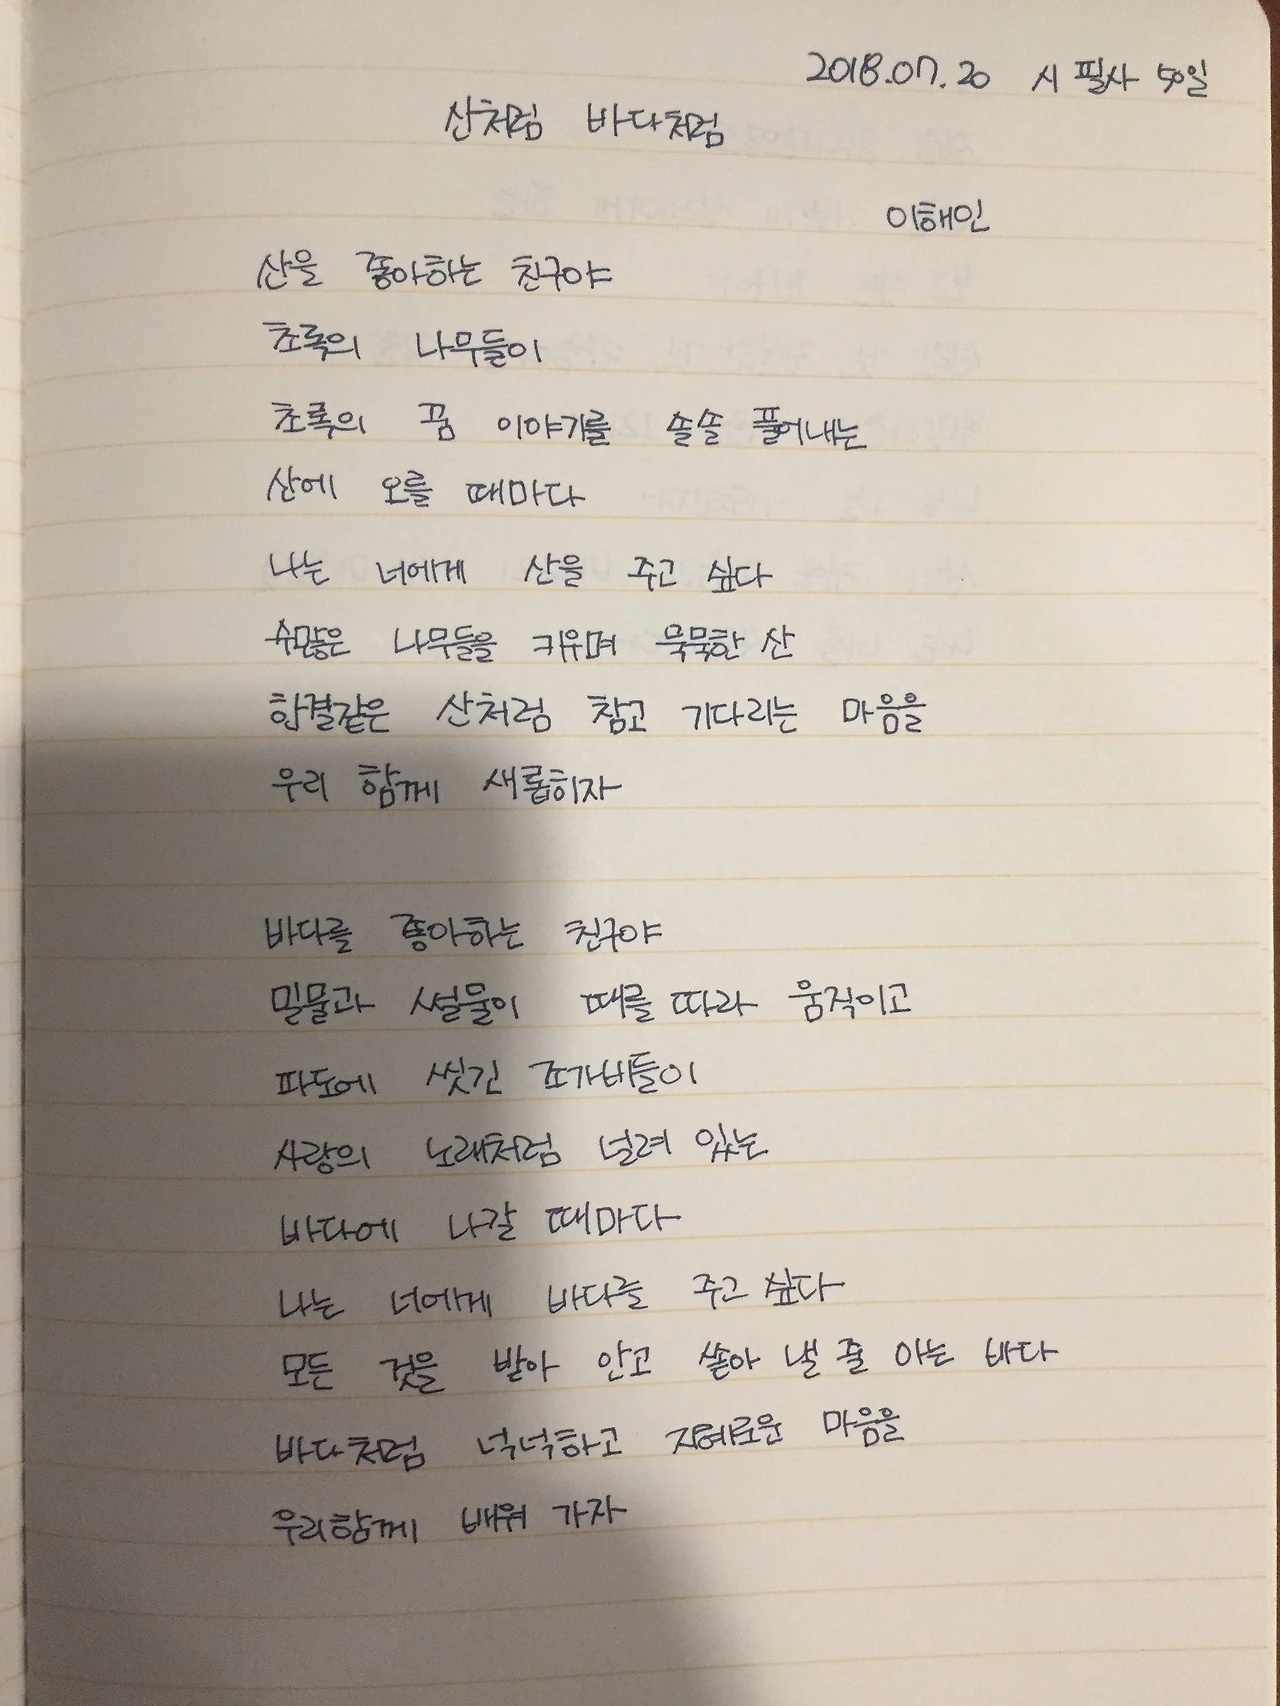 2018.07.20 시 필사 50일
산처럼 바다처럼
이해인
산을 좋아하는 친구야
초록의 나무들이
초록의 꿈 이야기를 솔솔 풀어내는
산에 오를 때마다
나는 너에게 산을 주고 싶다
수많은 나무들을 키우며 묵묵한 산
한결같은 산처럼 참고 기다리는 마음을
우리 함께 새롭히자
바다를 좋아하는 친구야
밀물과 썰물이 때를 따라 움직이고
파도에 씻긴 조가비들이
사랑의 노래처럼 널려 있는
바다에 나갈 때마다
나는 너에게 바다를 주고 싶다
모든 것을 받아 안고 쏟아 낼 줄 아는 바다
바다처럼 넉넉하고 지혜로운 마음을
우리함께 배워 가자